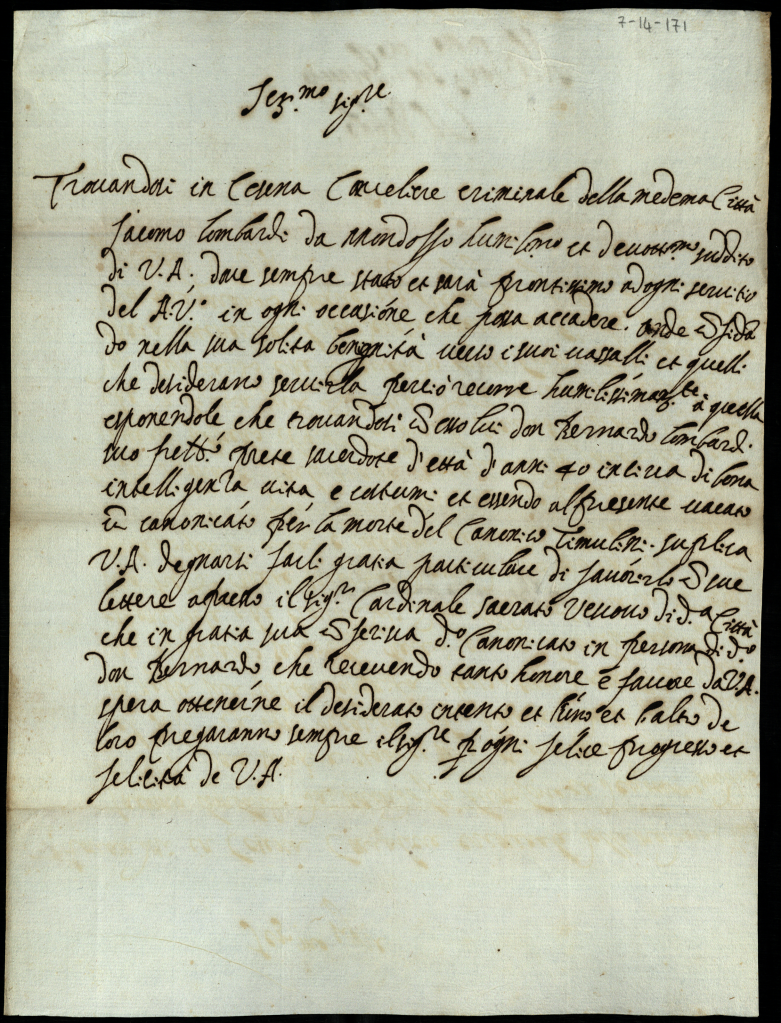 7-14-171
Ser.mo sig.re
Trouandosi in Cesena Canceliere criminale della medema Città
Jacomo Lombardi da Mondosso humil.mo et deuott.mo suddito
di V.A. doue sempre stato et sarà prontissimo ad ogni seruitio
del A.V.a in ogni occasione che possa accadere. onde confida
do nella sua solita benignità uerso i suoi uassalli et quelli
che desiderano seruirla perciò recorre humilissimam.te a quella
esponendole che trouandosi con esso lui don Bernardo Lombardi
suo frett.o prete sacerdote d'età d'anni 40 in circa di bona
intelligenza uita e costumi et essendo al presente uacato
un canonicato per la morte del Canonico Timulini. suplica
V.A. degnarsi farli gratia particulare di fauorirlo con sue
lettere apresso il sig.r Cardinale sacrato Vescouo di d.a Città
che in gratia sua conferisca d.o Canonicato in persona di d.o
don Bernardo che receuendo tanto honore e fauore da V.A.
spera ottenerne il desiderato intento et l'uno et l'altro de
loro pregaranno sempre il sig.re per ogni felice progresso et
felicità de V.A.